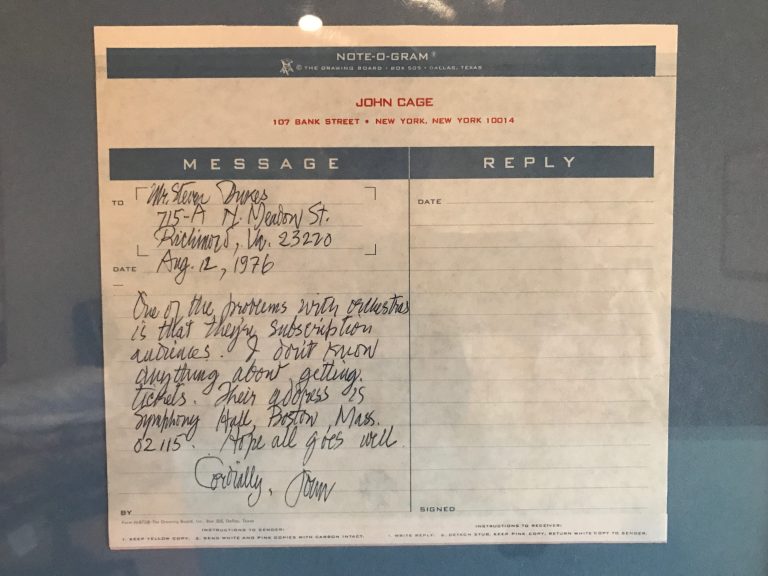 NOTE-O-GRAM®
© THE DRAWING BOARD • BOX 505 • DALLAS, TEXAS
JOHN CAGE
107 BANK STREET • NEW YORK, NEW YORK 10014
MESSAGE
TO
Mr. Steven
715-A N. Meadow St.
Richmond, Va. 23220
DATE
Aug. 12, 1976
One of the problems with orchestras
is that they're subscription
audiences. I don't know
anything about getting
tickets. Their address is
Symphony Hall, Boston, Mass.
02115. Hope all goes well.
Cordially, John
BY
The Drawing Board, Inc., Box 505, Dallas, Texas
INSTRUCTIONS TO SENDER:
1. KEEP YELLOW COPY. 2. SEND WHITE AND PINK COPIES WITH CARBON INTACT.
REPLY
DATE
SIGNED
INSTRUCTIONS TO RECEIVER:
1. WRITE REPLY. 2. DETACH STUB, KEEP PINK COPY, RETURN WHITE COPY TO SENDER.